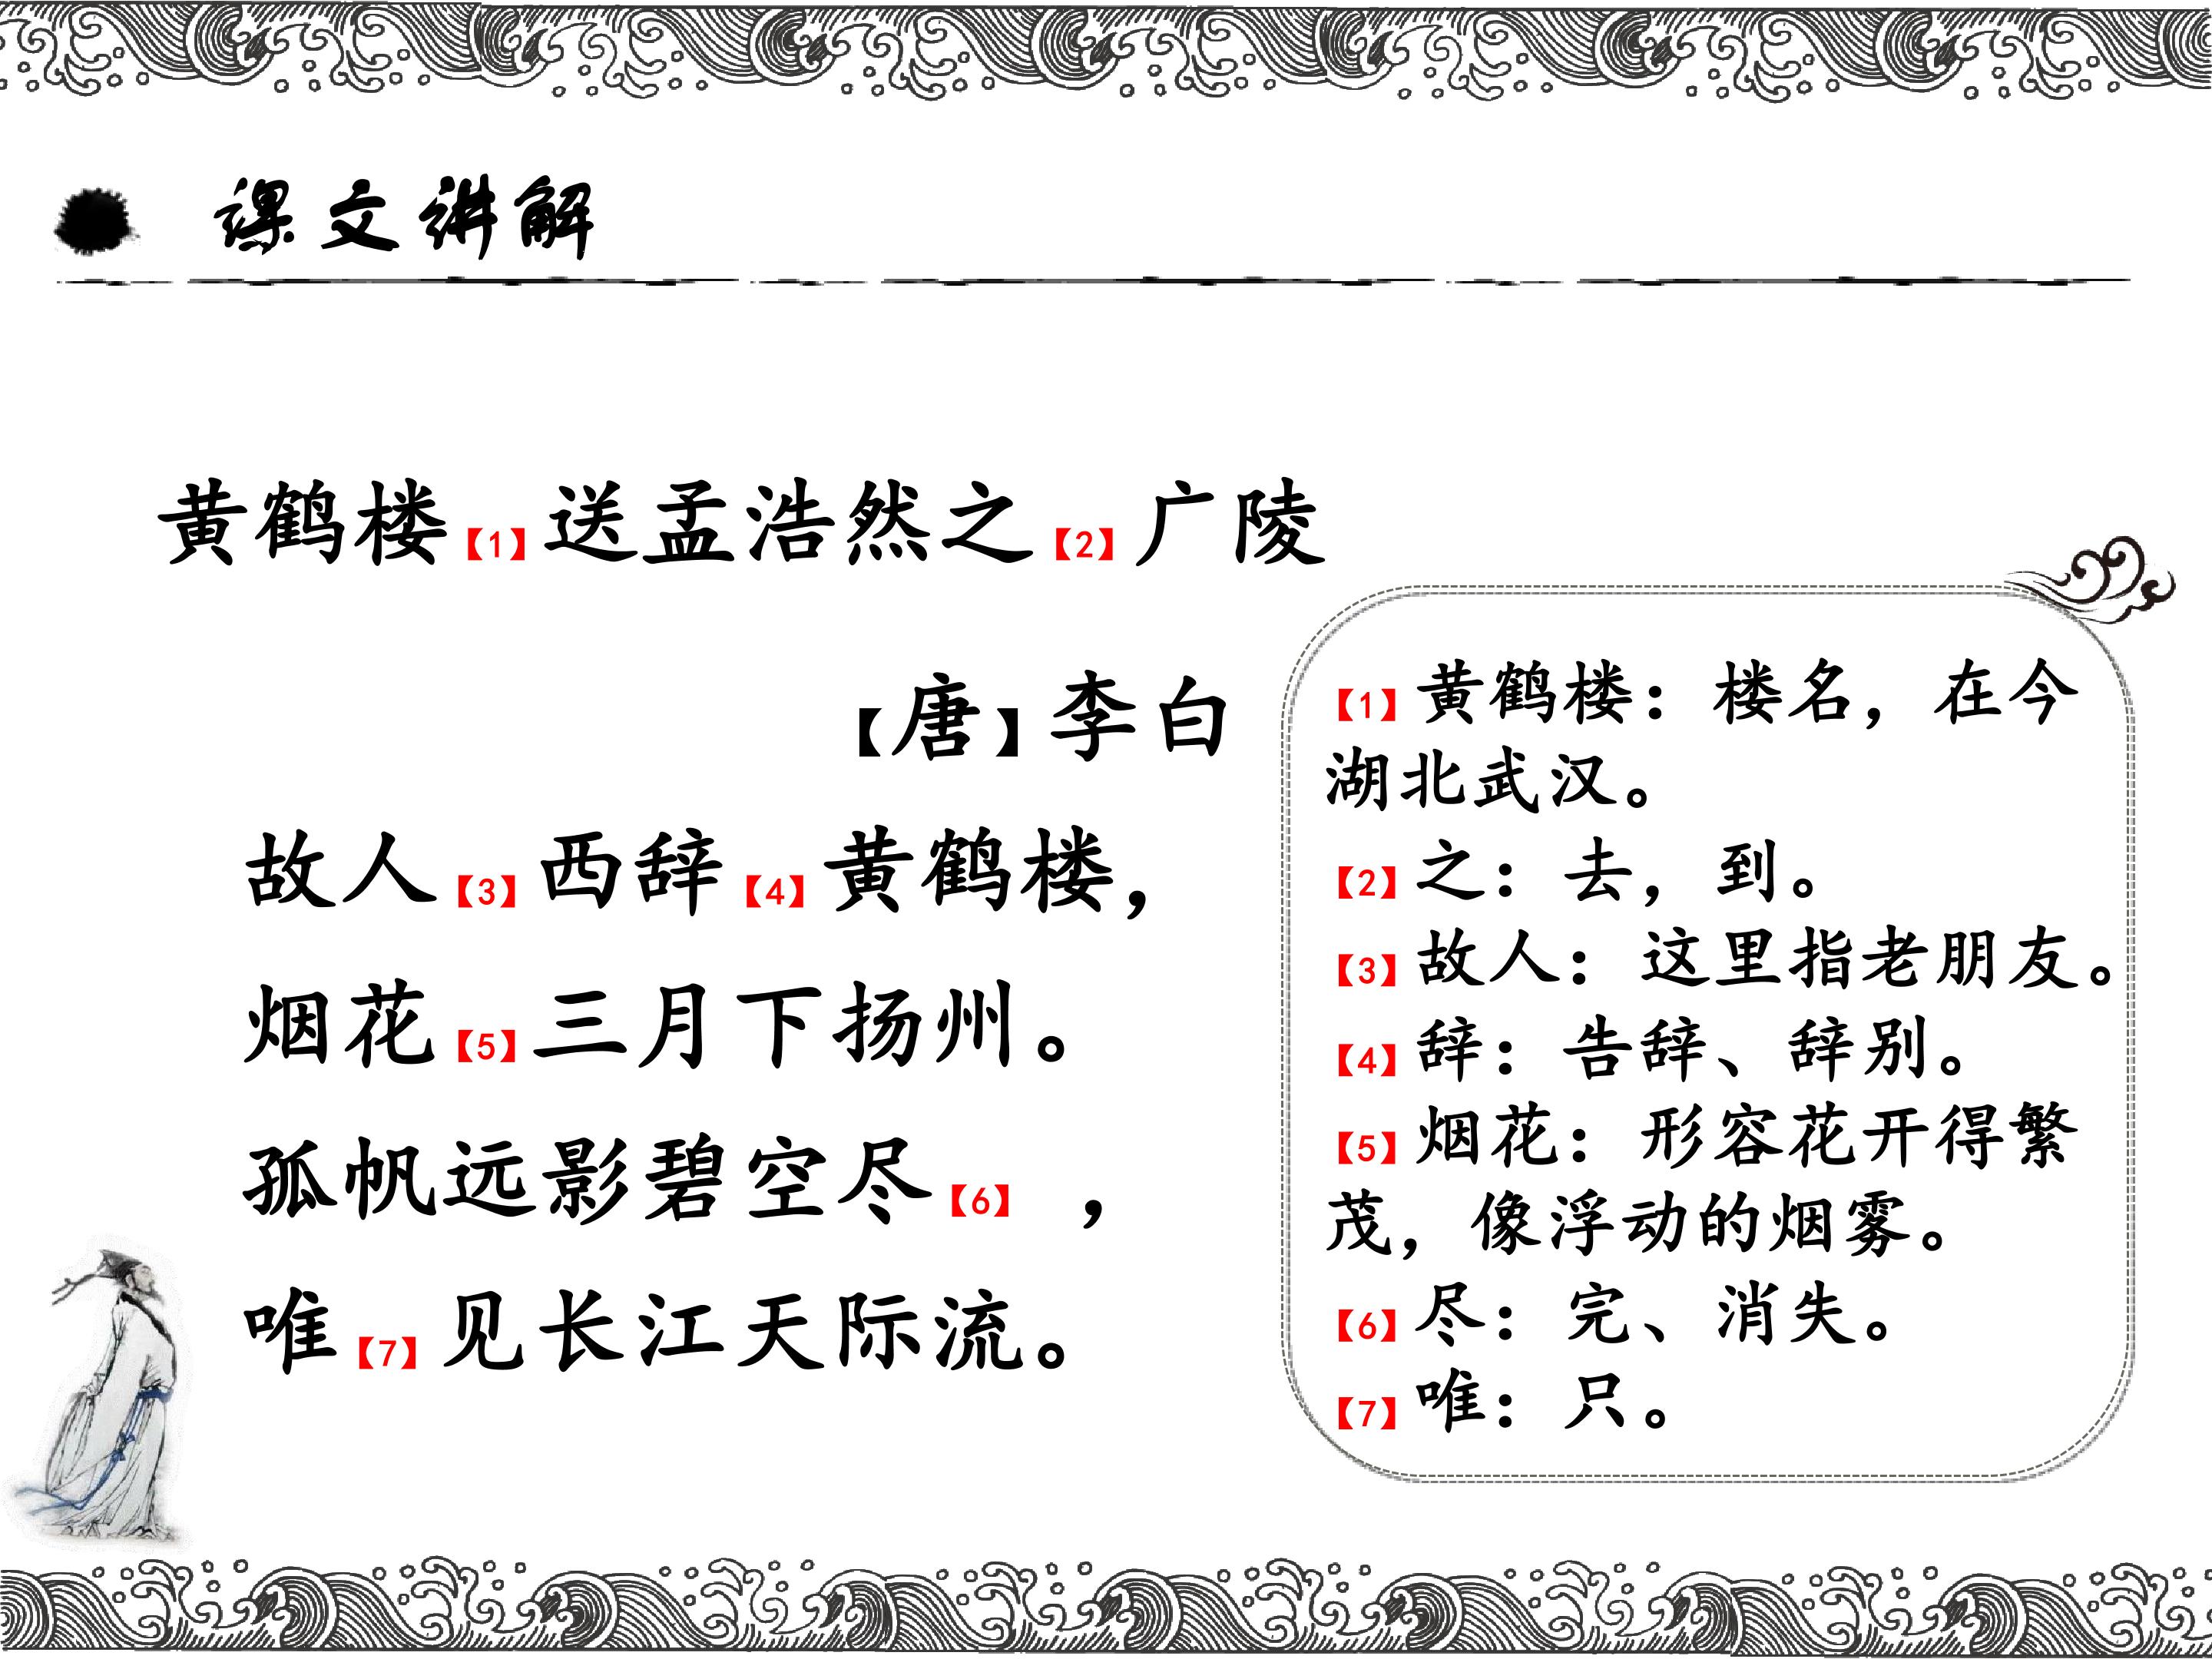 课文讲解
黄鹤楼【1】送孟浩然之【2】广陵
【唐】李白
故人【3】西辞【4】黄鹤楼，
烟花【5】三月下扬州。
孤帆远影碧空尽【6】，
唯【7】见长江天际流。
【1】黄鹤楼：楼名，在今
湖北武汉。
【2】之：去，到。
【3】故人：这里指老朋友。
【4】辞：告辞、辞别。
【5】烟花：形容花开得繁
茂，像浮动的烟雾。
【6】尽：完、消失。
【7】唯：只。